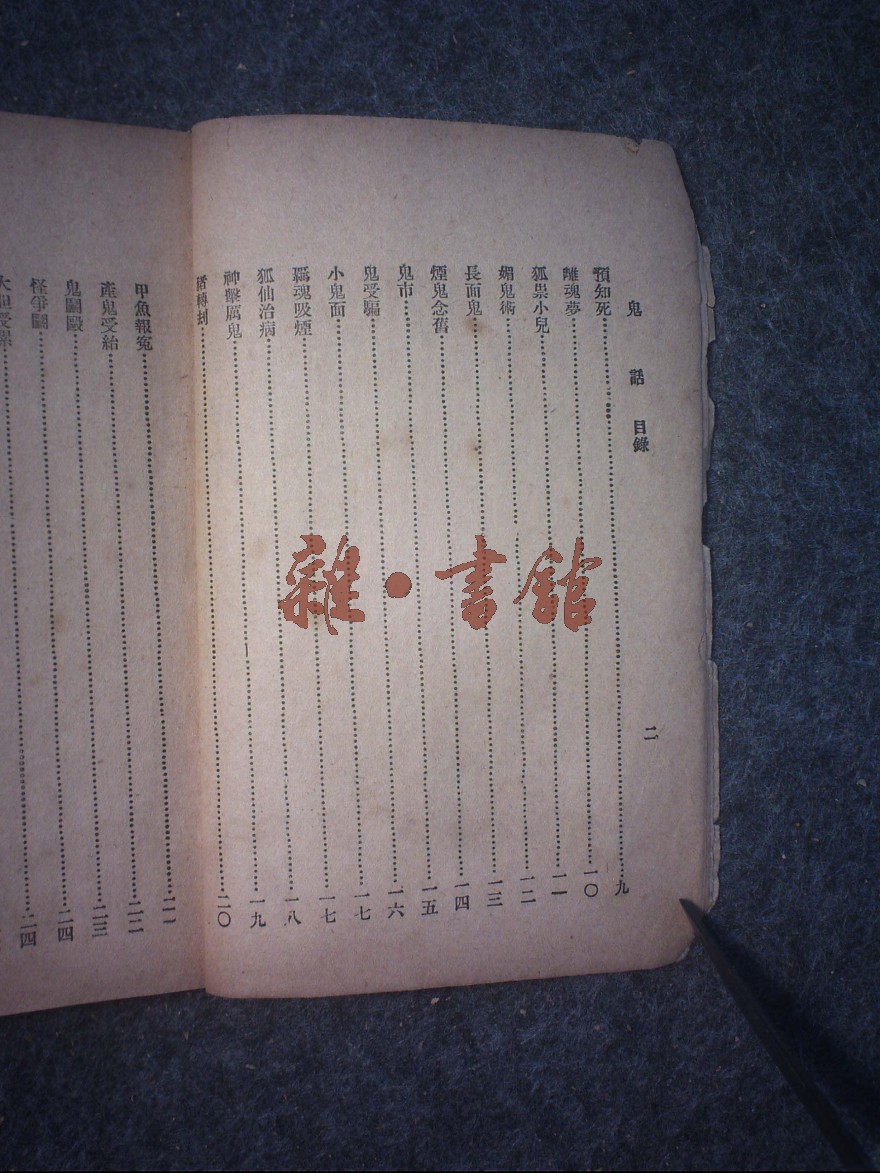 鬼話 目錄 二
預知死…………九
離魂夢…………一〇
狐祟小兒…………一一
媚鬼術…………一二
長面鬼…………一三
煙鬼念舊…………一四
鬼市…………一五
鬼受騙…………一六
小鬼面…………一七
羈魂吸煙…………一七
狐仙治病…………一八
神擊厲鬼…………一九
猪轉刦…………二〇
甲魚報寃…………二一
產鬼受紿…………二二
鬼鬭毆…………二三
怪爭鬭…………二四
大胆受…………二四
雜·書館